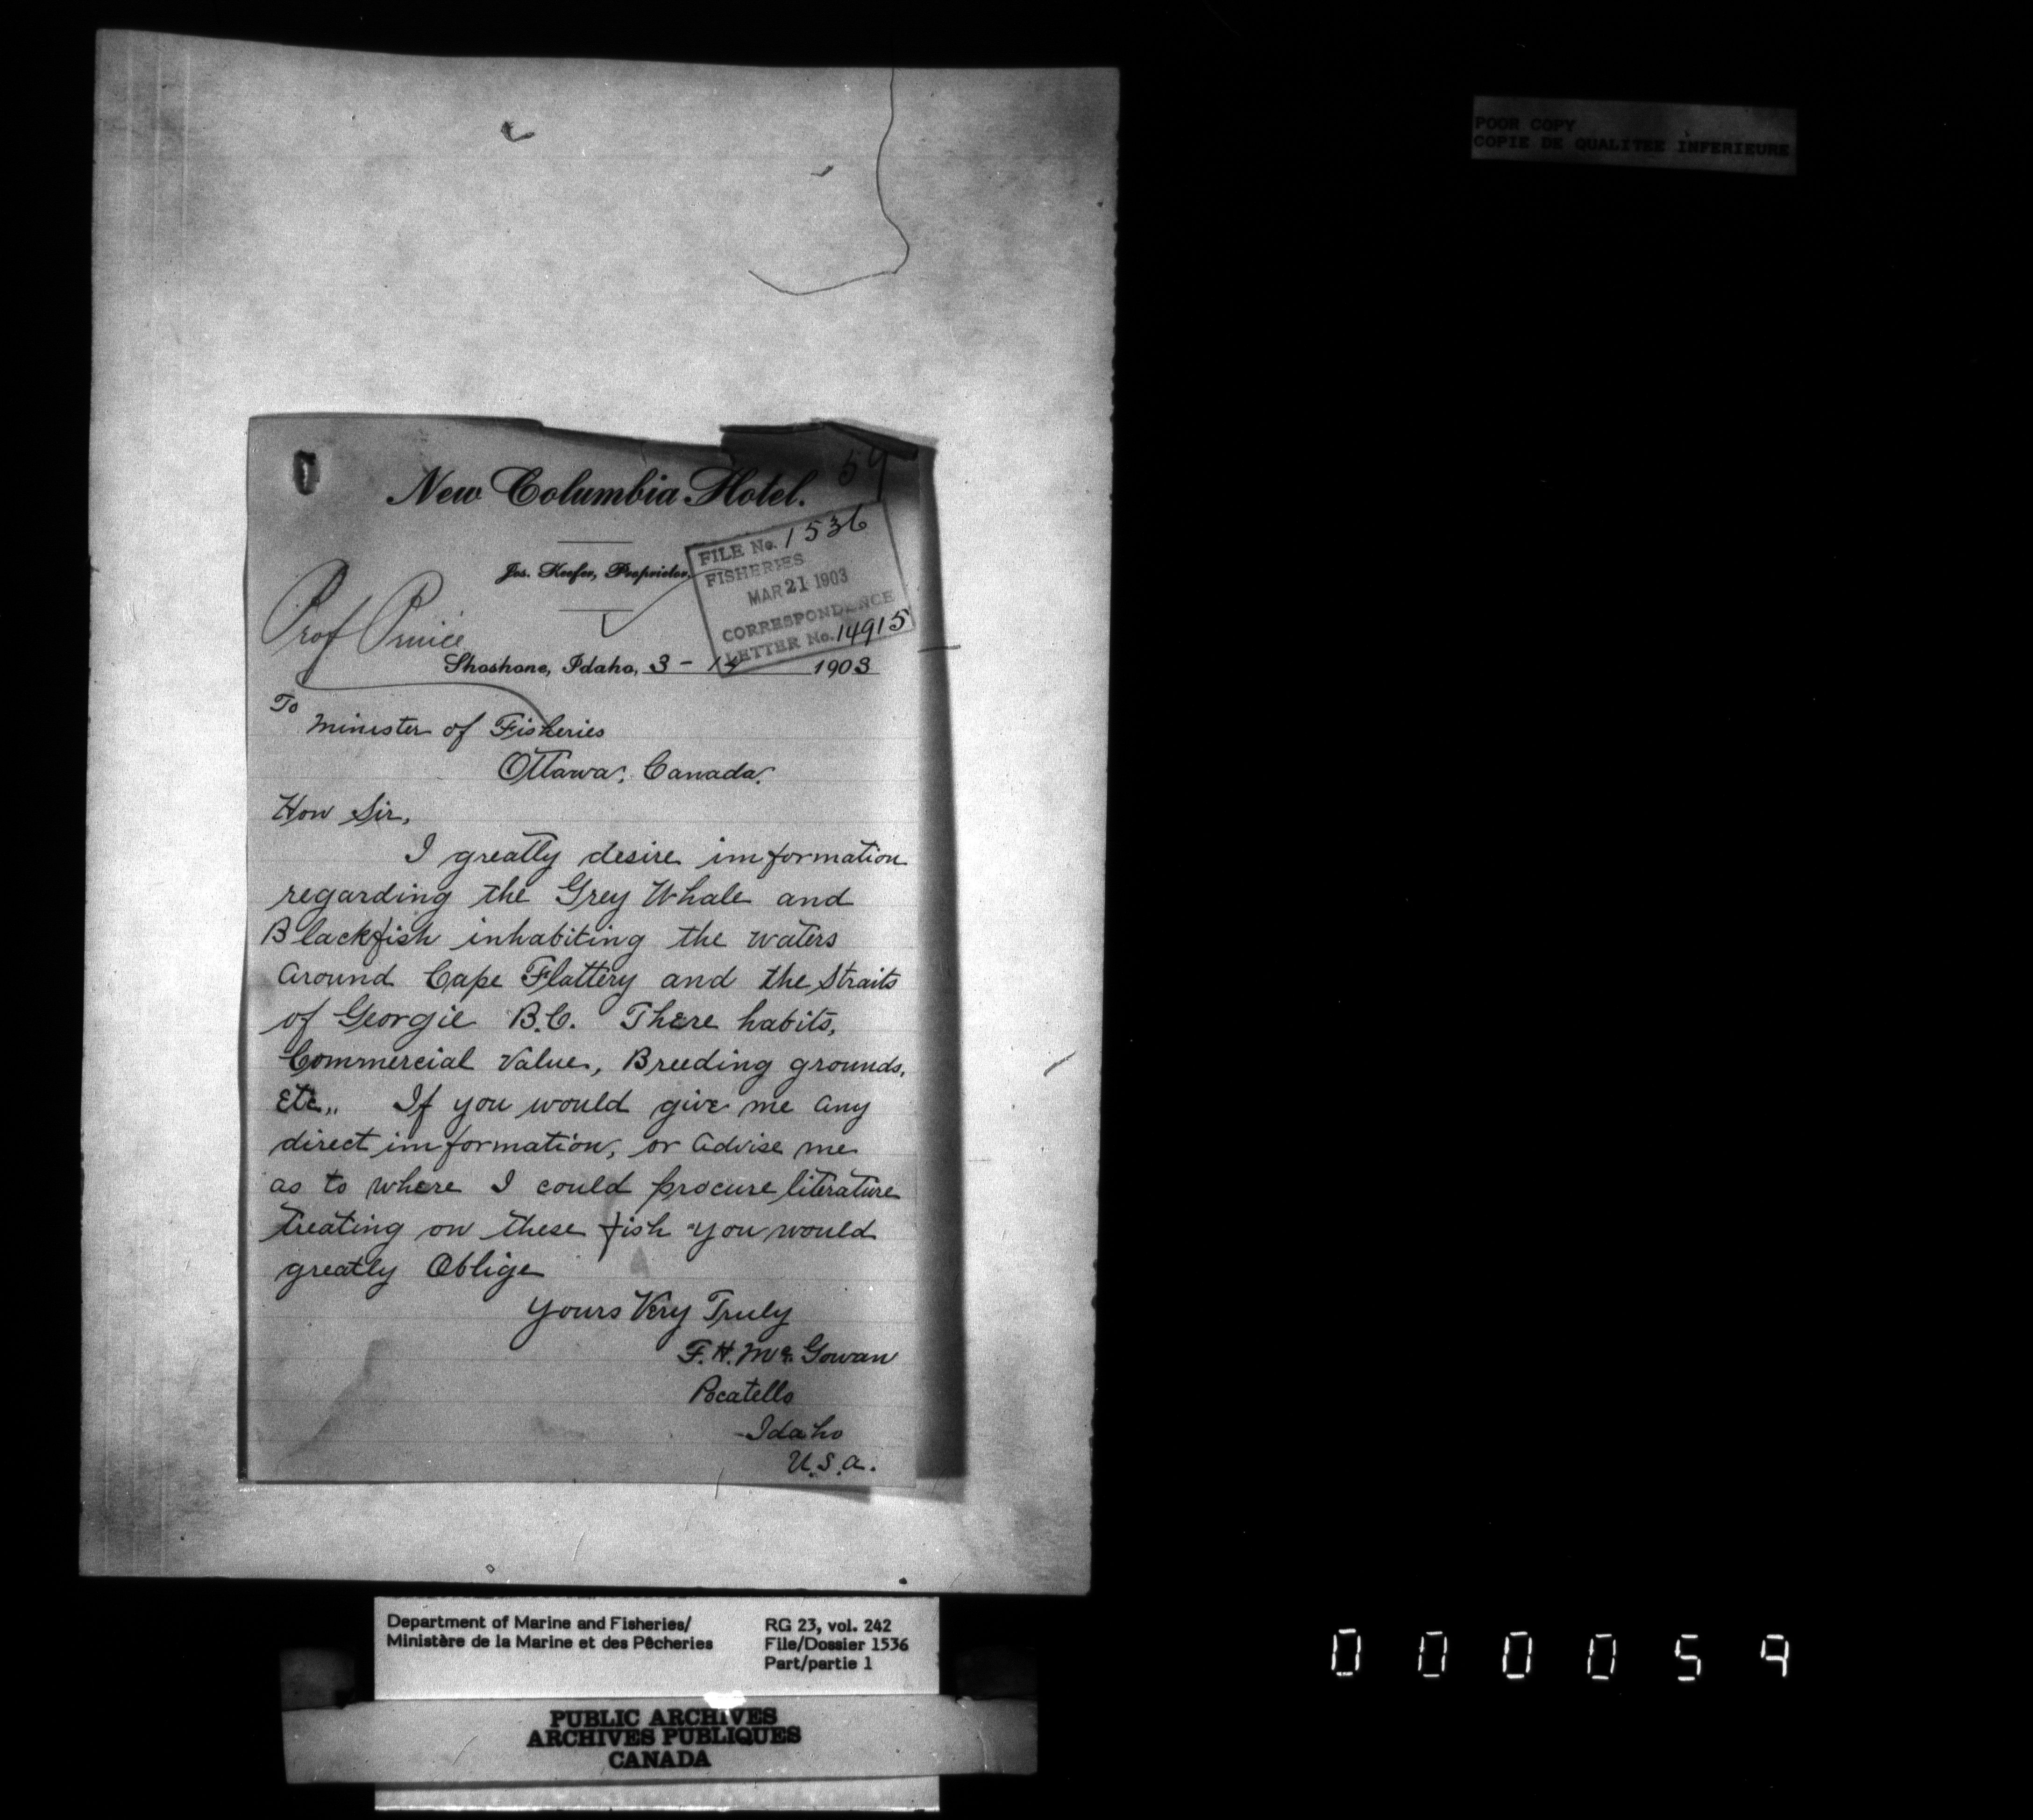 POOR COPY
COPIE DE QUALITEE INFERIEURE
59
New Columbia Hotel.
Jos. Keefer, Proprietor.
FILE No. 1536
FISHERIES
MAR 21 1903
CORRESPONDENCE
LETTER No. 14915
Prof Prince
Shoshone, Idaho, 3 - 14 1903
To
Minister of Fisheries
Ottawa, Canada.
Hon Sir,
I greatly desire imformation
regarding the Grey Whale and
Blackfish inhabiting the waters
around Cape Flattery and the Straits
of Georgie B.C. There habits,
Commercial Value, Breeding grounds,
etc,, If you would give me any
direct imformation, or advise me
as to where I could procure literature
treating on these fish you would
greatly Oblige
Yours Very Truly
F. H. Mc Gowan
Pocatello
Idaho
U.S.A.
Department of Marine and Fisheries/
Ministère de la Marine et des Pêcheries
RG 23, vol. 242
File/Dossier 1536
Part/partie 1
PUBLIC ARCHIVES
ARCHIVES PUBLIQUES
CANADA
000059